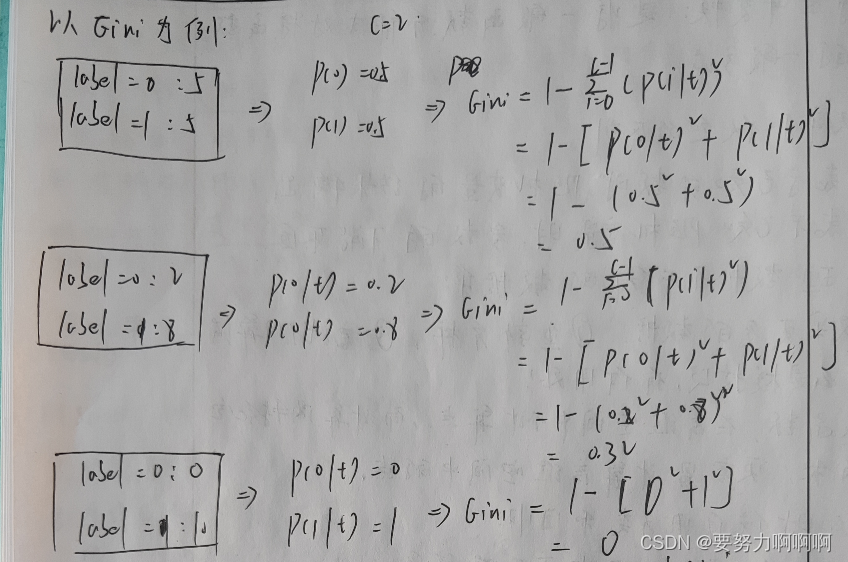 以 Gini 为例: C=2:
label=0 : 5 ⇒ P(0) =0.5 ⇒ Gini = 1 - Σ_{i=0}^{C-1} (P(i/t))²
label=1 : 5 P(1) =0.5
= 1-[P(0/t)² + P(1/t)²]
= 1 - (0.5² + 0.5²)
= 0.5
label=0 : 2 ⇒ P(0/t) = 0.2 ⇒ Gini = 1 - Σ_{i=0}^{C-1} (P(i/t)²)
label=1 : 8 P(0/t) =0.8
= 1-[P(0/t)² + P(1/t)²]
=1-(0.2² + 0.8)²
= 0.32
label=0 : 0 ⇒ P(0/t) = 0 ⇒ Gini = 1-[0²+1²]
label=1 : 10 P(1/t) = 1
= 0
CSDN @要努力啊啊啊